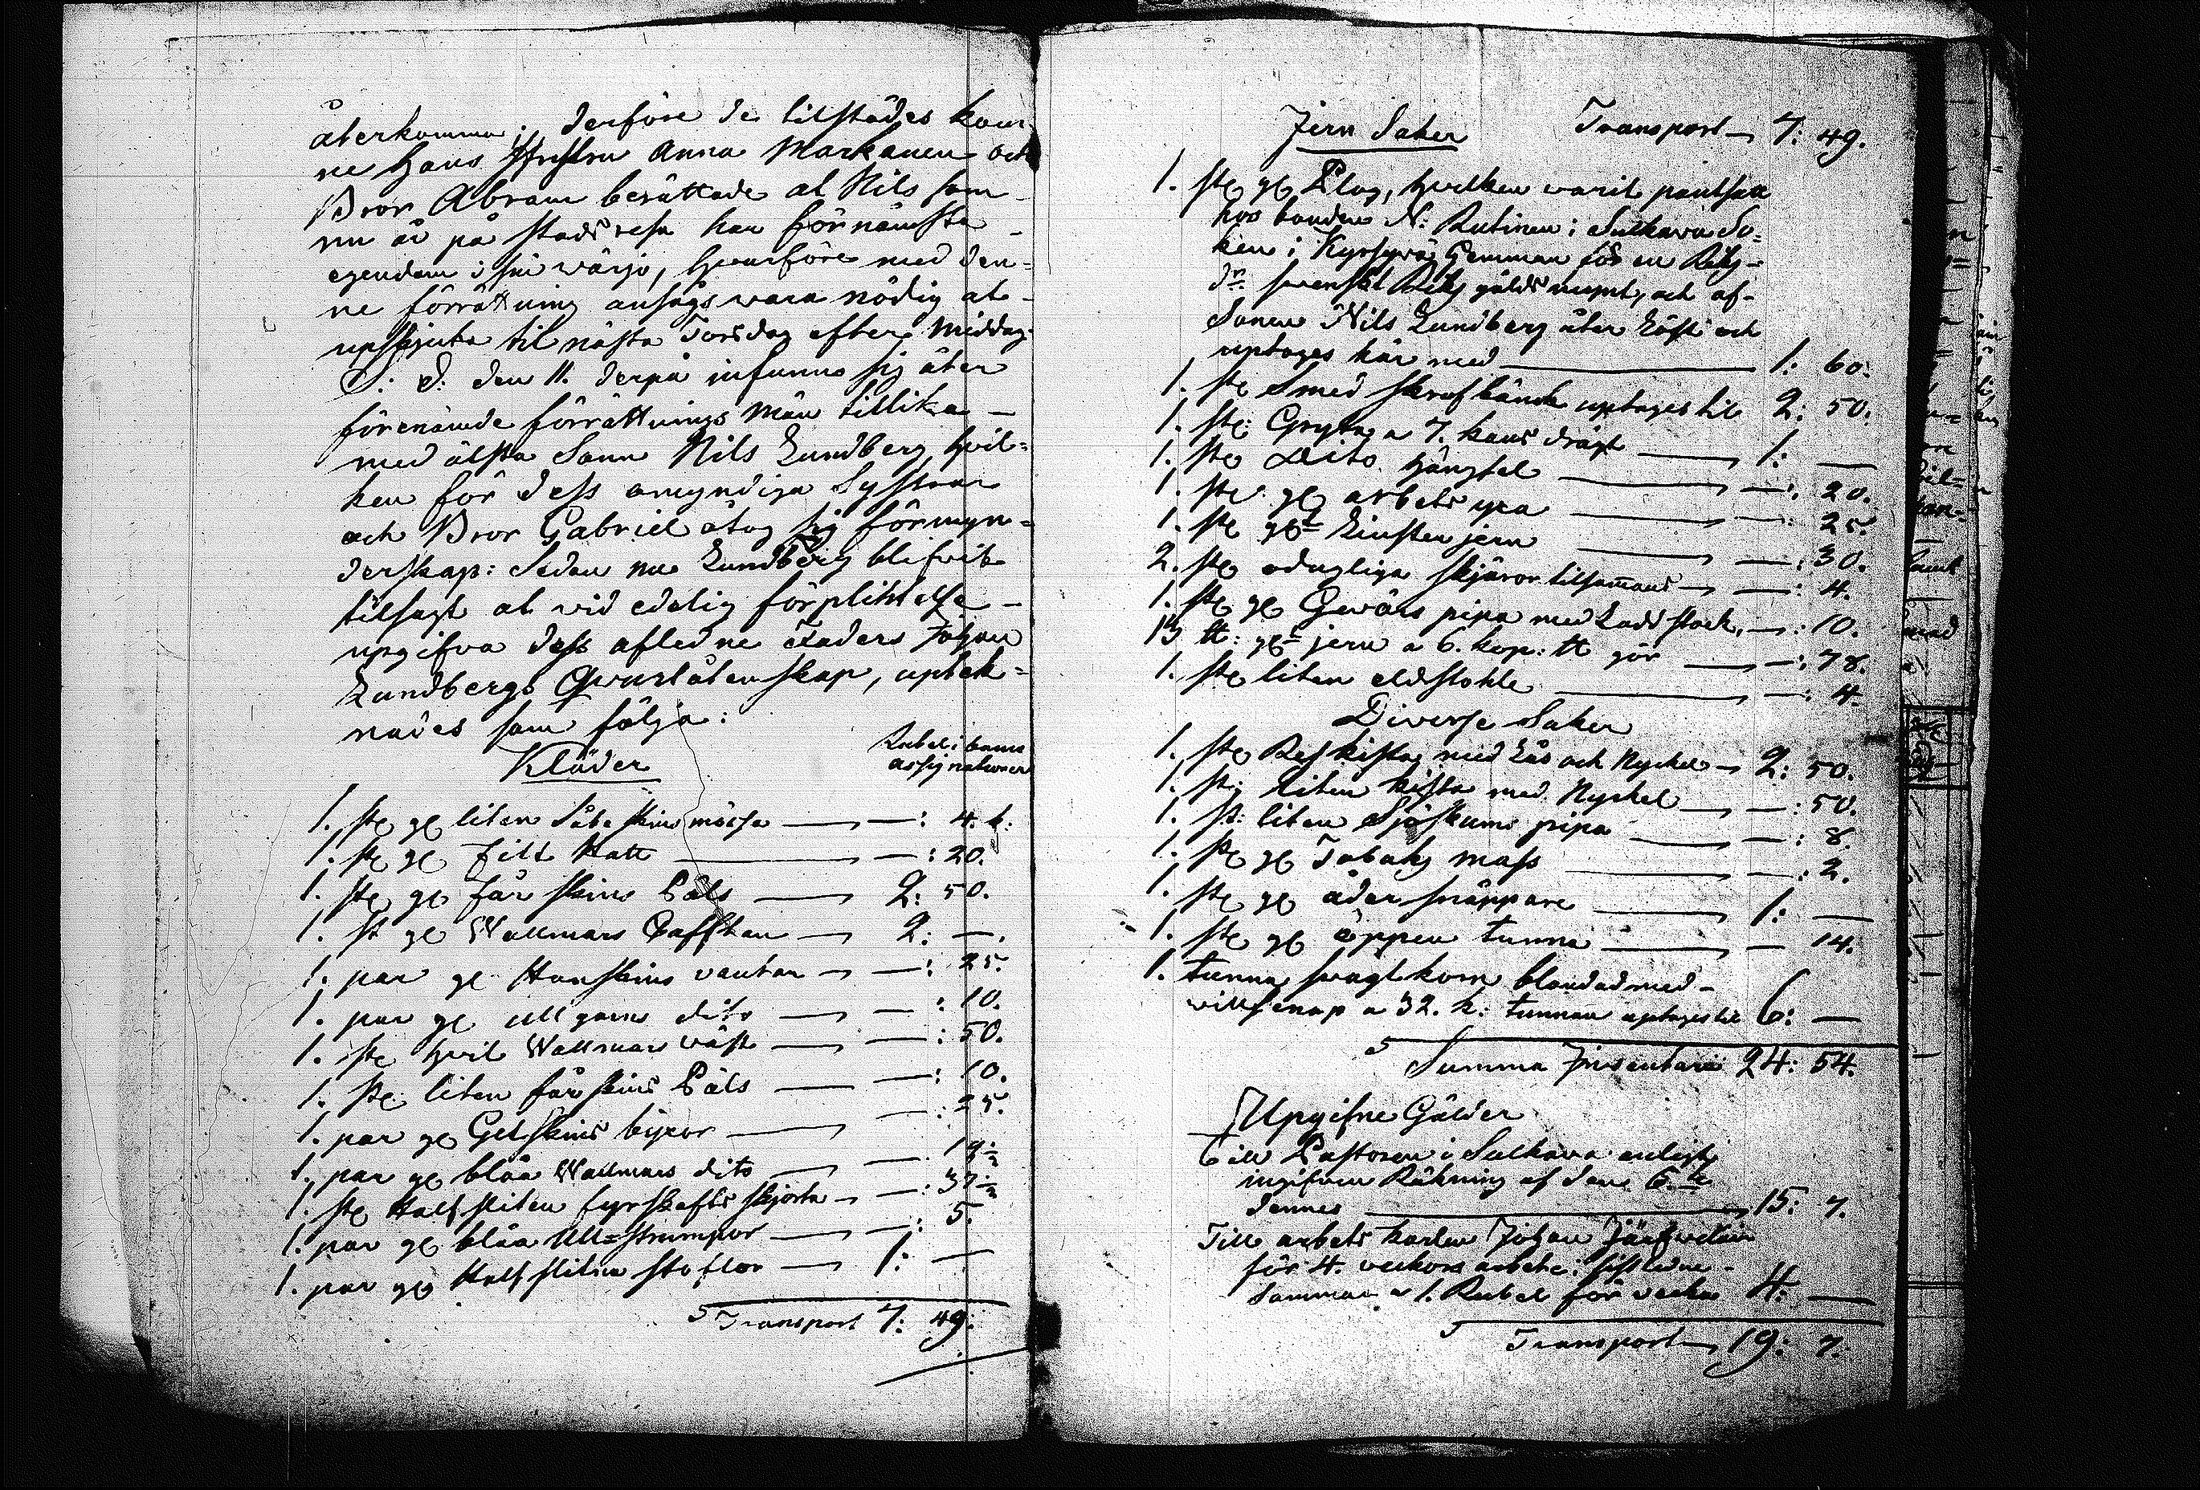 återkomma; derföre de tilstädes kom¬
ne hans Hustru Anna Markanen och
Bror Abram berättade at Nils som
nu är på stads resa har förnämsta
egendom i sin wärjo, hvarföre med den=
ne förrättning ansågs vara nödig at
upskjuta til nästa Torsdag efter Middag.
S: D: den 11. derpå infunno sig åter
förenämde förrättnings Män tillika
med älsta Sonn Nils Lundberg, hvil=
ken för dess omyndiga Systrar
och Bror Gabriel åtog sig förmyn=
derskap: Sedan nu Lundberg blifvit
tilsagt at vid edelig förplichtelse
upgifva dess afledne Faders Johan
Lundbergs Qvarlåtenskap, uptek=
nades som följa:
Kläder
Rubel i banco
assignationer
1. st: gl liten Såbelskins mössa — — : 4. k:
1. st: gl filt Hatt — — : 20.
1. st: gl fårskins Päls — 2: 50.
1. st gl Wallmars Cafftan — 2: —.
1. par gl Hanskins vantar — — : 25.
1. par gl ullgarns dito — — : 10.
1. st: hvit Wallmars väst — — : 50.
1. st: liten fårskins Päls — — : 10.
1. par gl Getskins bixor — — : 25.
1. par gl blåa Wallmars dito — — 12½
1. st: Halfsliten fyrskafts skjorta — — : 37½
1. par gl blåa Ull=strumpor — — : 5.
1. par gl Halfslitna stöflor — 1: —
Transport 7: 49.
Jern Saker Transport — 7: 49.
1. st: gl Plog, hvilken varit pantsatt
hos bonden N: Rutinen i Sulkava So=
ken i Kyrsyvä Gemman för en Rik¬
dr svenskt Riksgälds mynt, och af¬
Sonen Nils Lundberg åter Löst och
uptages här med — 1: 60:
1. st: Smed skrufhänck uptages til 2: 50.
1. st: Gryta a 7. kans drägt — 1: —
1. st: Dito hängsel — —: 20.
1. st: gl arbets yxa — —: 25.
1. st: gl Liusten jern — —: 30.
2. st: odugliga skjäror tilsamans — —: 4.
1. st: gl Gevärs pipa med Laddstock, —: 10.
13 ℔: gl jern a 6. kop: ℔ gör — —: 78.
1. st: liten eldstohle — —: 4.
Diverse Saker
1. st: Reskista med Lås och Nyckel — 2: 50.
1. st: liten kista med Nyckel — —: 50.
1. st: liten Sjöskums pipa — —: 8.
1. st: gl Tobaks mass — —: 2.
1. st: gl åder snäppare — 1: —
1. st: gl öppen tunna — — 14.
1. tunna svagt korn blandad med¬
vill senap a 32. k: tunnan uptages til 6: —
Summa Inventarii 24: 54.
Upgifne Gälder
Till Pastoren i Sulkava enligt
ingifven Räkning af den 6.te
dennes — 15: 7.
Till arbets karlen Johan
för 4. veckors arbete i sistledne¬
Sommar a 1. Rubel för vecka 4: —
Transport — 19: 7.